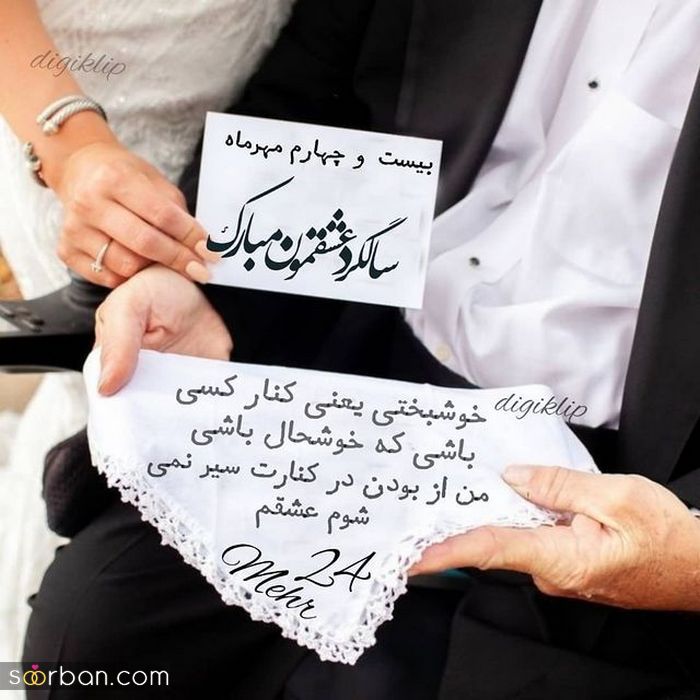 digiklip
بیست و چهارم مهرماه
سالگرد عشقمون مبارک
خوشبختی یعنی کنار کسی
digiklip
باشی که خوشحال باشی
من از بودن در کنارت سیر نمی
شوم عشقم
24
Mehr
soorban.com